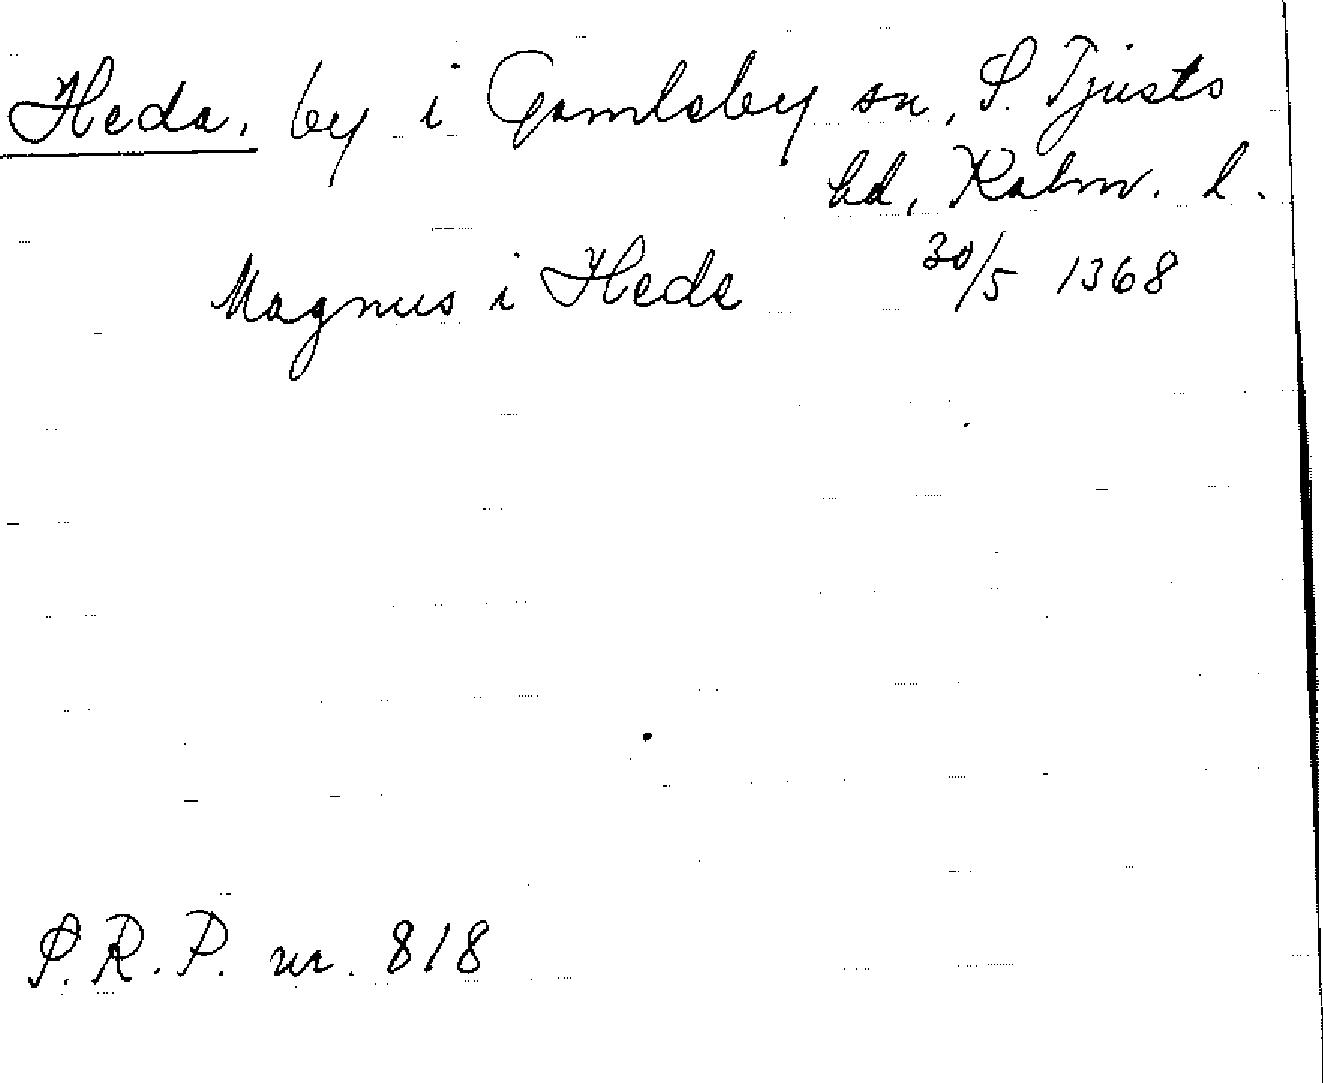 Heda, by i Gamleby sn, S. Tjusts
hd, Kalm. l.
Magnus i Heda 30/5 1368
S.R.P. nr. 818